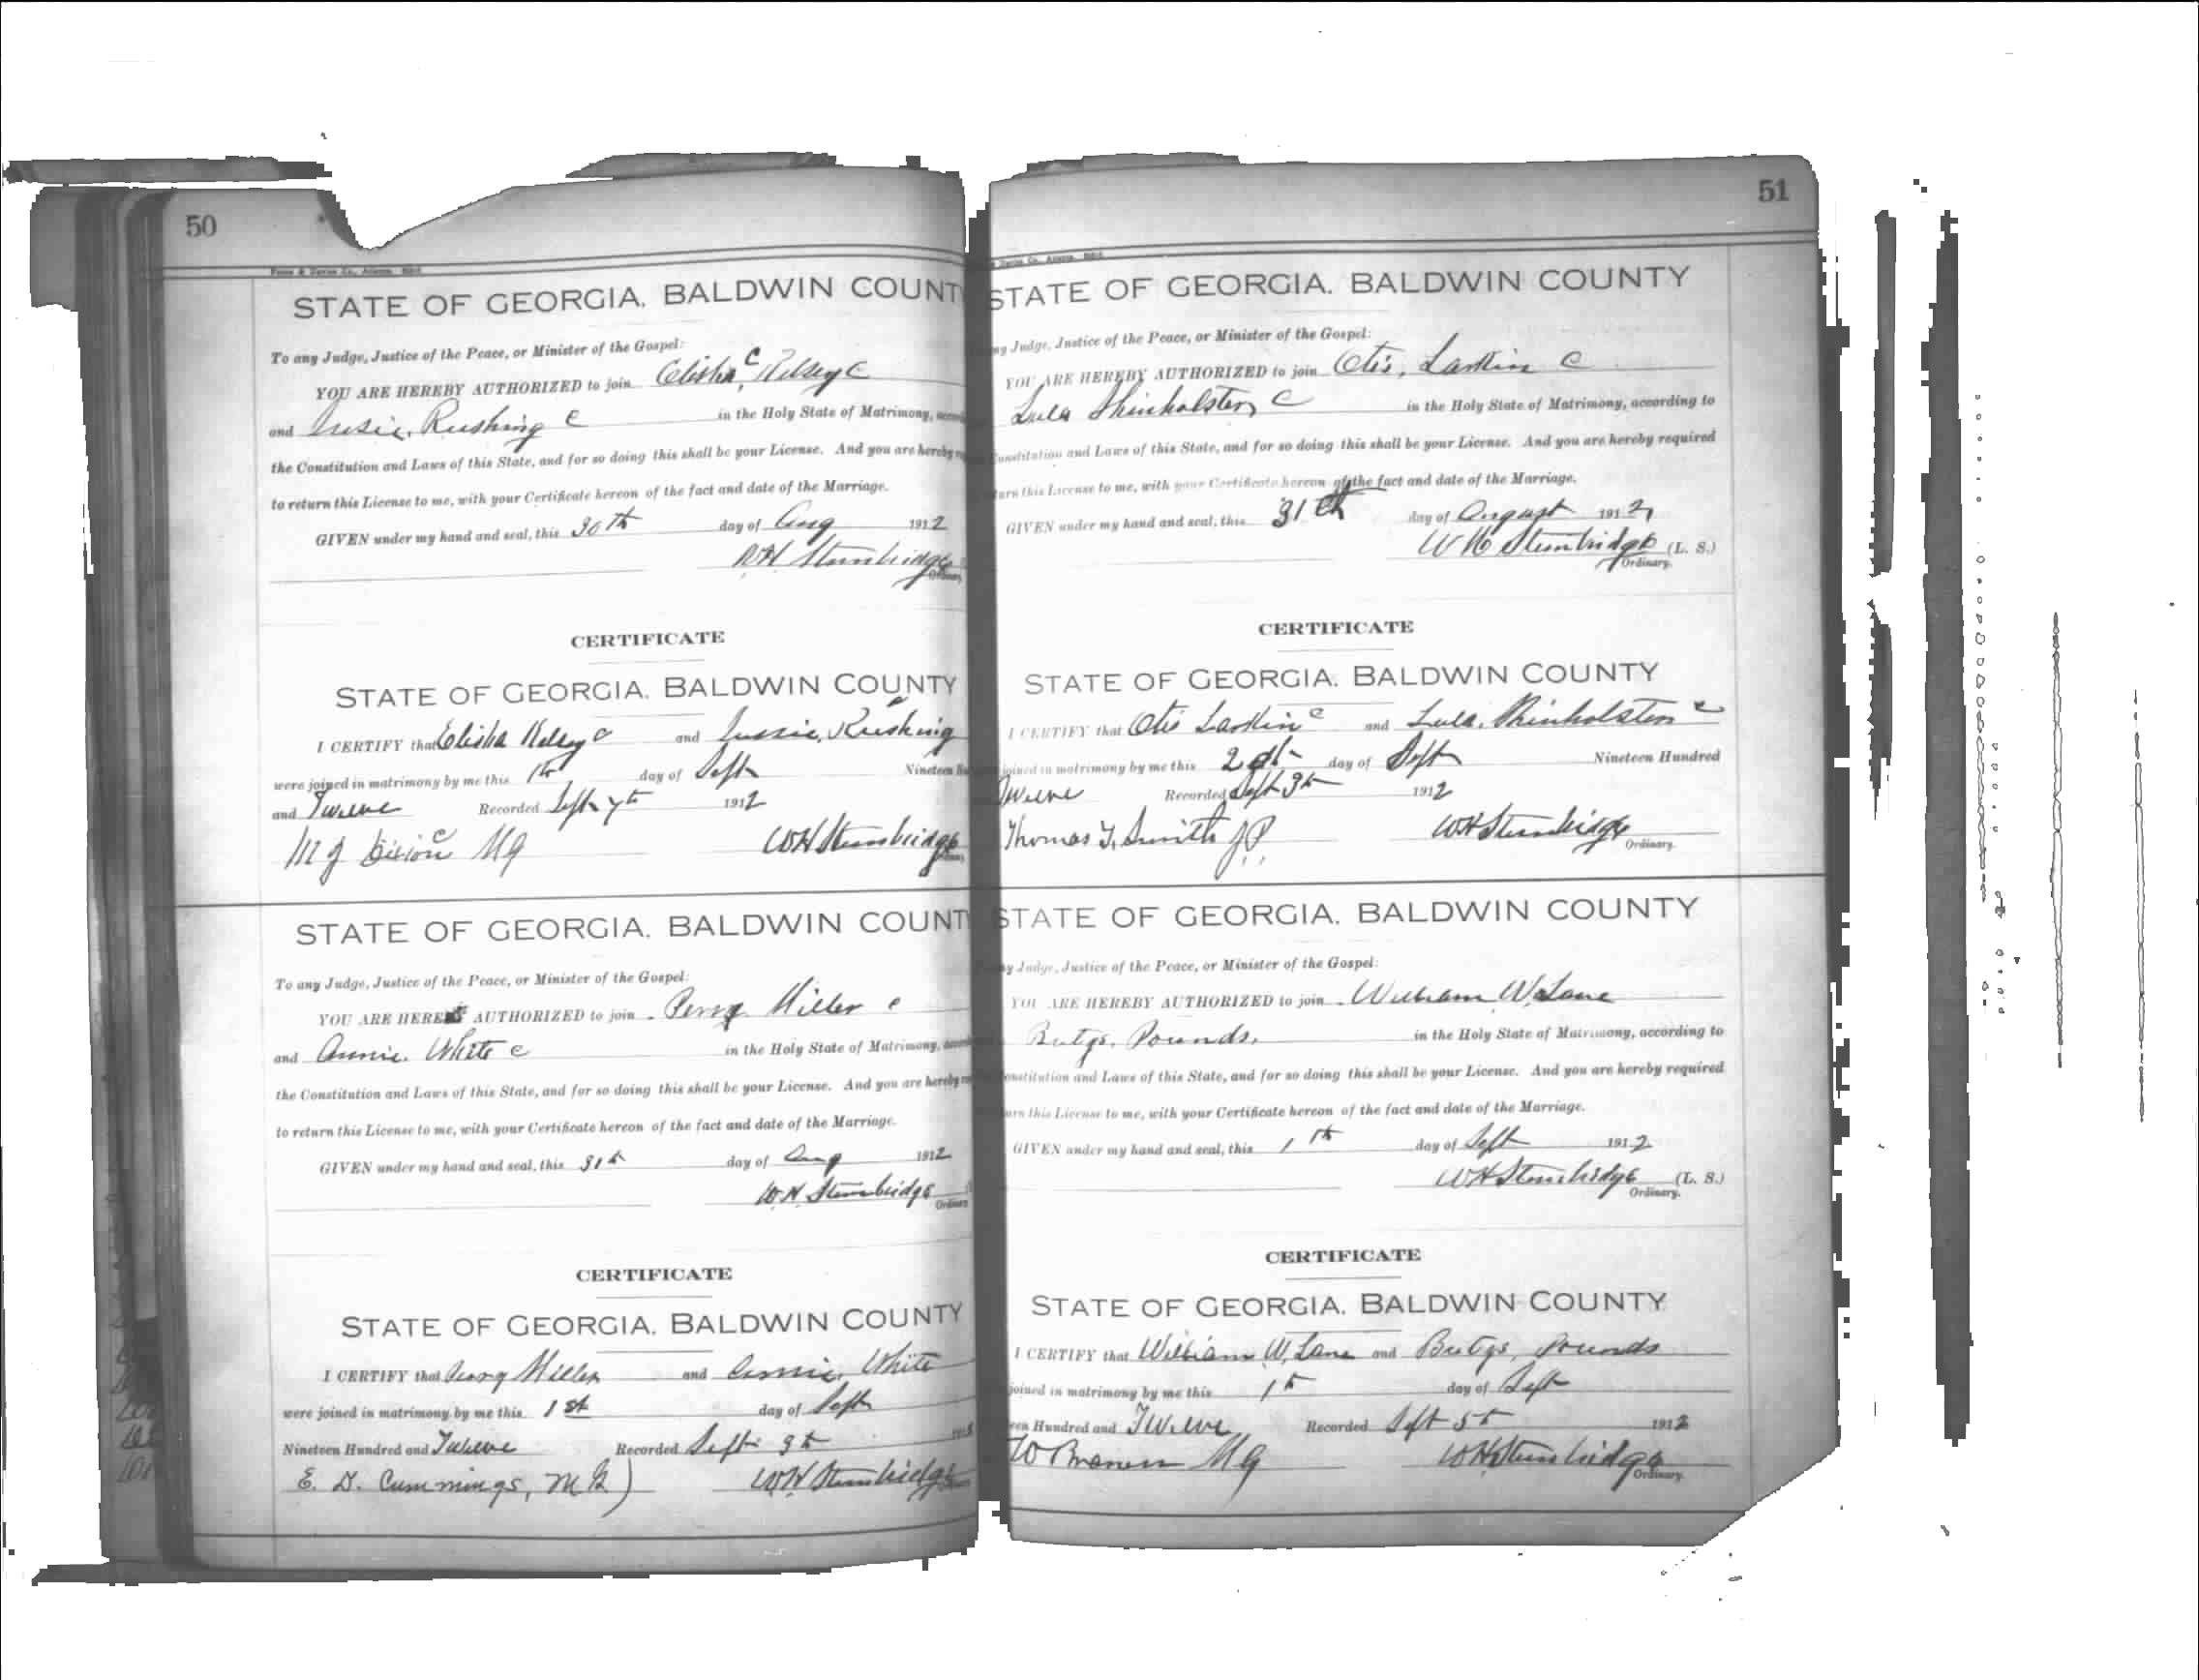 50
STATE OF GEORGIA. BALDWIN COUNT
To any Judge, Justice of the Peace, or Minister of the Gospel:
YOU ARE HEREBY AUTHORIZED to join Elisha C Kelsey C
and Susie Rushing C in the Holy State of Matrimony,
the Constitution and Laws of this State, and for so doing this shall be your License. And you are hereby
to return this License to me, with your Certificate hereon of the fact and date of the Marriage.
GIVEN under my hand and seal, this 30th day of Aug 1912
WH Stembridge
Ordinary
CERTIFICATE
STATE OF GEORGIA. BALDWIN COUNTY
I CERTIFY that Elisha Kelsey C and Rushing
were joined in matrimony by me this day of Sept Nineteen
and Twelve Recorded Sept 7th 1912
MG WH Stembridge
STATE OF GEORGIA. BALDWIN COUNT
To any Judge, Justice of the Peace, or Minister of the Gospel:
YOU ARE AUTHORIZED to join Perry Miller c
and Annie White c in the Holy State of Matrimony,
the Constitution and Laws of this State, and for so doing this shall be your License. And you are hereby
to return this License to me, with your Certificate hereon of the fact and date of the Marriage.
GIVEN under my hand and seal, this 31st day of Aug 1912
W.H. Stembridge
CERTIFICATE
STATE OF GEORGIA. BALDWIN COUNTY
I CERTIFY that Perry Miller and Annie White
were joined in matrimony by me this 1st day of Sept
Nineteen Hundred and Twelve Recorded Sept 3
E. D. Cummings, M.G. WH Stembridge
51
STATE OF GEORGIA. BALDWIN COUNTY
ny Judge, Justice of the Peace, or Minister of the Gospel:
YOU ARE HEREBY AUTHORIZED to join Otis, Larkin C
Lula Shinholster C in the Holy State of Matrimony, according to
Constitution and Laws of this State, and for so doing this shall be your License. And you are hereby required
turn this License to me, with your Certificate hereon of the fact and date of the Marriage.
GIVEN under my hand and seal, this 31 day of August 1912
WH Stembridge (L. S.)
Ordinary.
CERTIFICATE
STATE OF GEORGIA. BALDWIN COUNTY
I CERTIFY that Otis Larkin c and Lula, Shinholster c
joined in matrimony by me this day of Sept Nineteen Hundred
Twelve Recorded Sept 1912
Thomas J.P. WH Stembridge
Ordinary.
STATE OF GEORGIA. BALDWIN COUNTY
y Judge, Justice of the Peace, or Minister of the Gospel:
YOU ARE HEREBY AUTHORIZED to join William W. Lane
Pounds. in the Holy State of Matrimony, according to
Constitution and Laws of this State, and for so doing this shall be your License. And you are hereby required
urn this License to me, with your Certificate hereon of the fact and date of the Marriage.
GIVEN under my hand and seal, this day of Sept 1912
WH Stembridge (L. S.)
Ordinary.
CERTIFICATE
STATE OF GEORGIA. BALDWIN COUNTY
I CERTIFY that William W. Lane and Pounds
joined in matrimony by me this day of Sept
een Hundred and Twelve Recorded Sept 5th 1912
MG WH Stembridge
Ordinary.